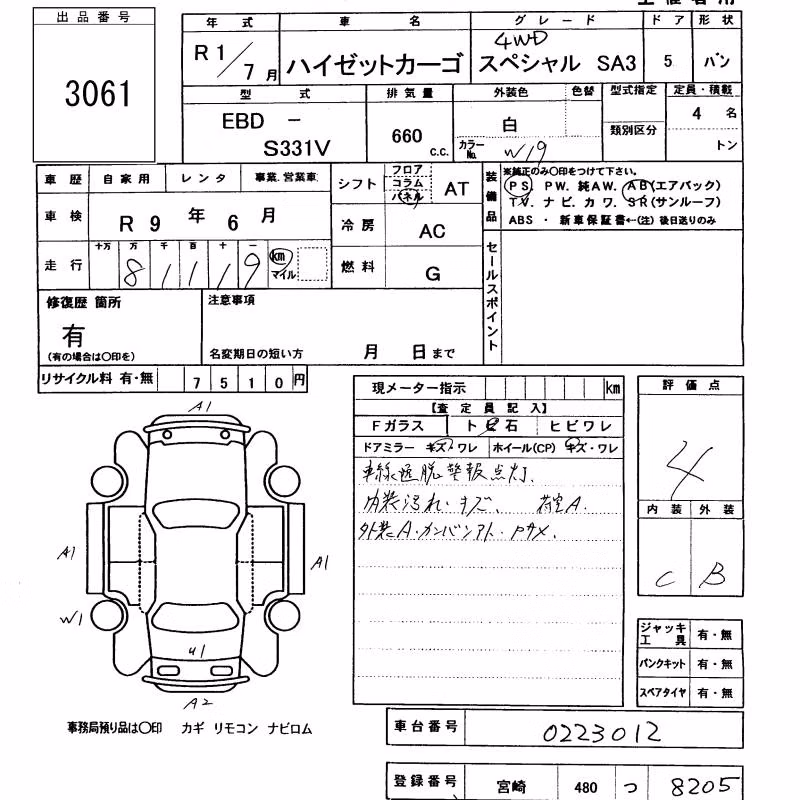 出品番号
3061
年式 車名 グレード ドア 形状
R1/7月 ハイゼットカーゴ 4WD スペシャル SA3 5 バン
型式 排気量 外装色 色替 型式指定 定員・積載
EBD - S331V 660 c.c. 白 カラーNo. W19 類別区分 4名 トン
車歴 自家用 レンタ 事業.営業車
シフト フロア コラム パネル AT
装備品 ※純正のみ〇印をつけて下さい。
PS. PW. 純AW. AB(エアバック)
TV. ナビ. カワ. SR(サンルーフ)
ABS ・ 新車保証書←(注) 後日送りのみ
車検 R9年6月
冷房 AC
走行 十万 万 千 百 十 一
81119 km マイル
燃料 G
セールスポイント
修復歴 箇所
有
(有の場合は〇印を)
注意事項
名変期日の短い方 月 日まで
リサイクル料 有・無 7510円
現メーター指示 km
【査定員記入】
Fガラス トビ石 ヒビワレ
ドアミラー キズ・ワレ ホイール(CP) キズ・ワレ
車線逸脱警報点灯.
内装汚れ・キズ. 荷室A.
外装A・カンバンアト・Pサメ.
評価点
4
内装 外装
C B
A1
A1
A1
W1
U1
A2
ジャッキ工具 有・無
パンクキット 有・無
スペアタイヤ 有・無
事務局預り品は〇印 カギ リモコン ナビロム
車台番号 0223012
登録番号 宮崎 480 つ 8205